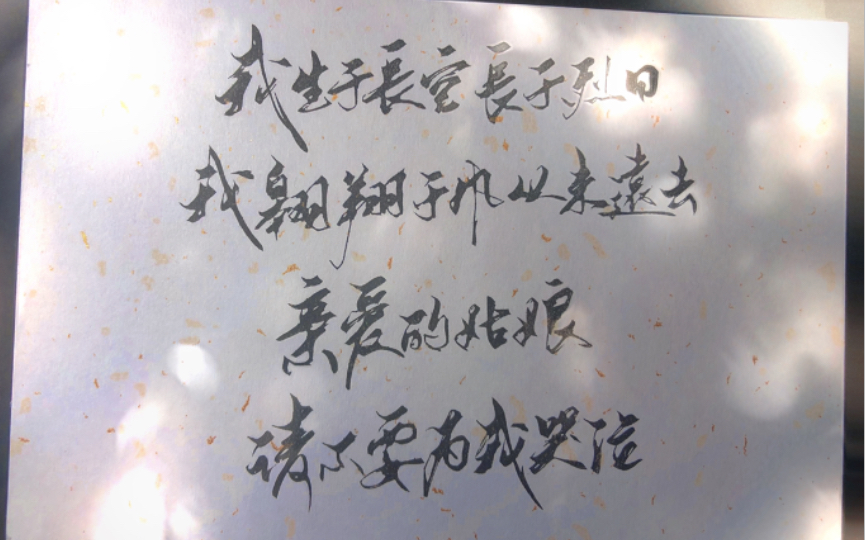 我生于長空長于烈日
我翱翔于风从未遠去
亲爱的姑娘
请不要为我哭泣